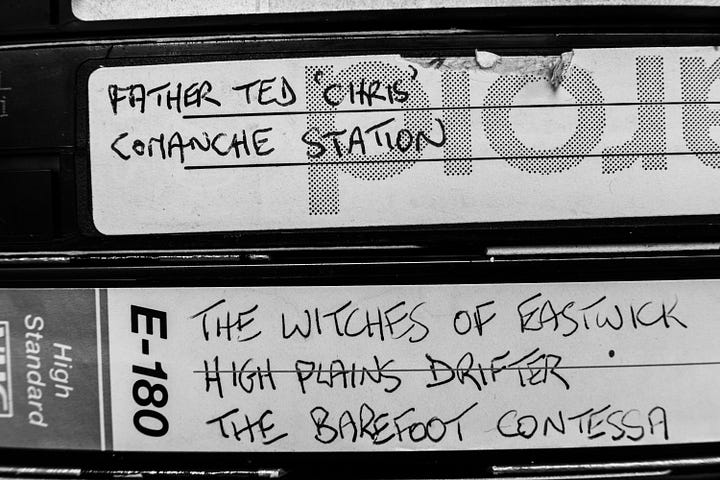 FATHER TED 'CHRIS'
COMANCHE STATION
High
Standard
E-180
THE WITCHES OF EASTWICK
HIGH PLAINS DRIFTER
THE BAREFOOT CONTESSA